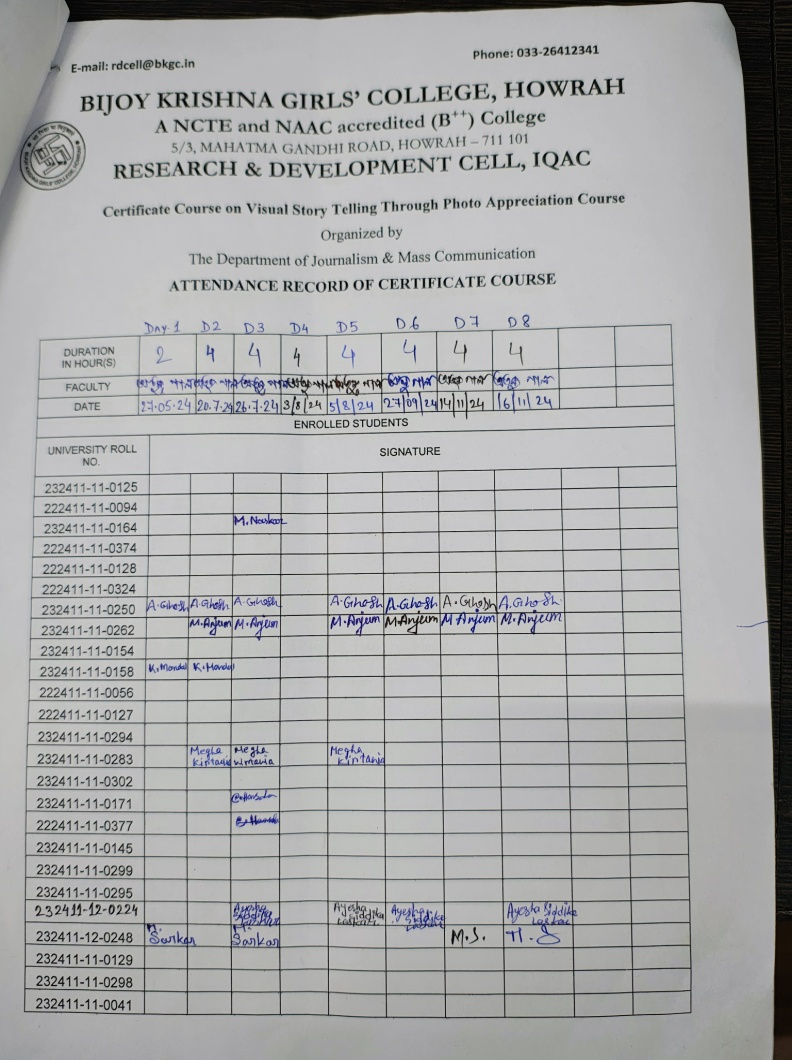 E-mail: rdcell@bkgc.in
Phone: 033-26412341
BIJOY KRISHNA GIRLS' COLLEGE, HOWRAH
A NCTE and NAAC accredited (B++) College
5/3, MAHATMA GANDHI ROAD, HOWRAH – 711 101
RESEARCH & DEVELOPMENT CELL, IQAC
Certificate Course on Visual Story Telling Through Photo Appreciation Course
Organized by
The Department of Journalism & Mass Communication
ATTENDANCE RECORD OF CERTIFICATE COURSE
Day-1 D2 D3 D4 D5 D6 D7 D8
DURATION IN HOUR(S) 2 4 4 4 4 4 4 4
FACULTY
DATE 27.05.24 20.7.24 26.7.24 3/8/24 5/8/24 27/09/24 14/11/24 16/11/24
ENROLLED STUDENTS
UNIVERSITY ROLL NO. SIGNATURE
232411-11-0125
222411-11-0094
232411-11-0164 M.Naskar
222411-11-0374
222411-11-0128
222411-11-0324
232411-11-0250 A.Ghosh A.Ghosh A.Ghosh A.Ghosh A.Ghosh A.Ghosh A.Ghosh
232411-11-0262 M.Anjum M.Anjum M.Anjum M.Anjum M.Anjum M.Anjum
232411-11-0154
232411-11-0158 K.Mondal K.Mondal
222411-11-0056
222411-11-0127
232411-11-0294
232411-11-0283 Megha Kirtania Megha Kirtania Megha Kirtania
232411-11-0302
232411-11-0171
222411-11-0377
232411-11-0145
232411-11-0299
232411-11-0295
232411-12-0224 Ayesha Siddika Laskar Ayesha Siddika Laskar Ayesha Siddika Laskar Ayesha Siddika Laskar
232411-12-0248 Sarkar Sarkar M.S.
232411-11-0129
232411-11-0298
232411-11-0041